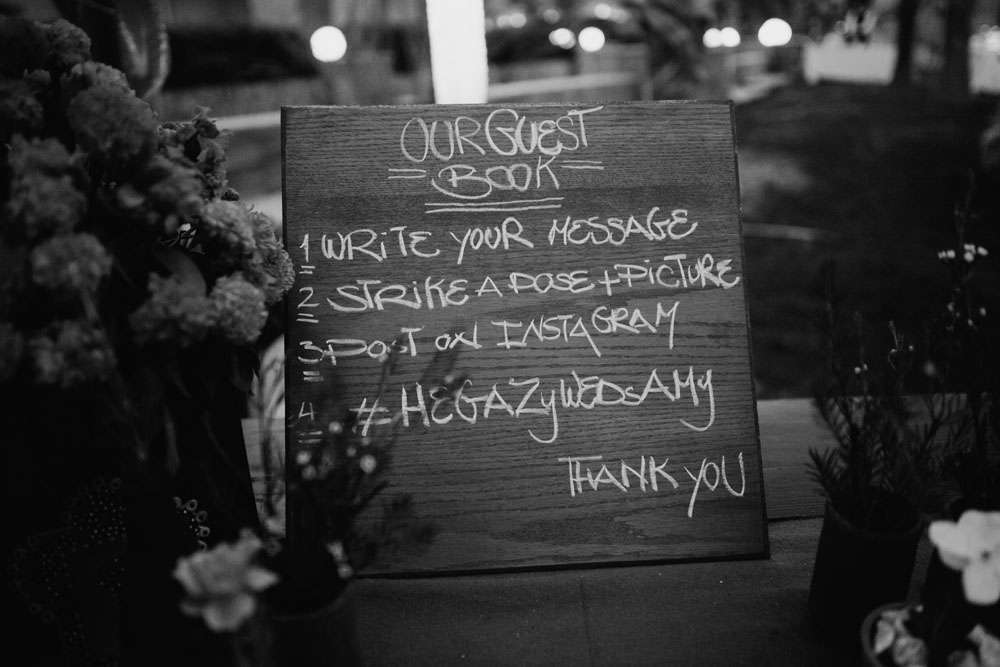 OUR GUEST
BOOK
1 WRITE YOUR MESSAGE
2 STRIKE A POSE + PICTURE
3 POST ON INSTAGRAM
4 #HEGAZYWEDSAMY
THANK YOU